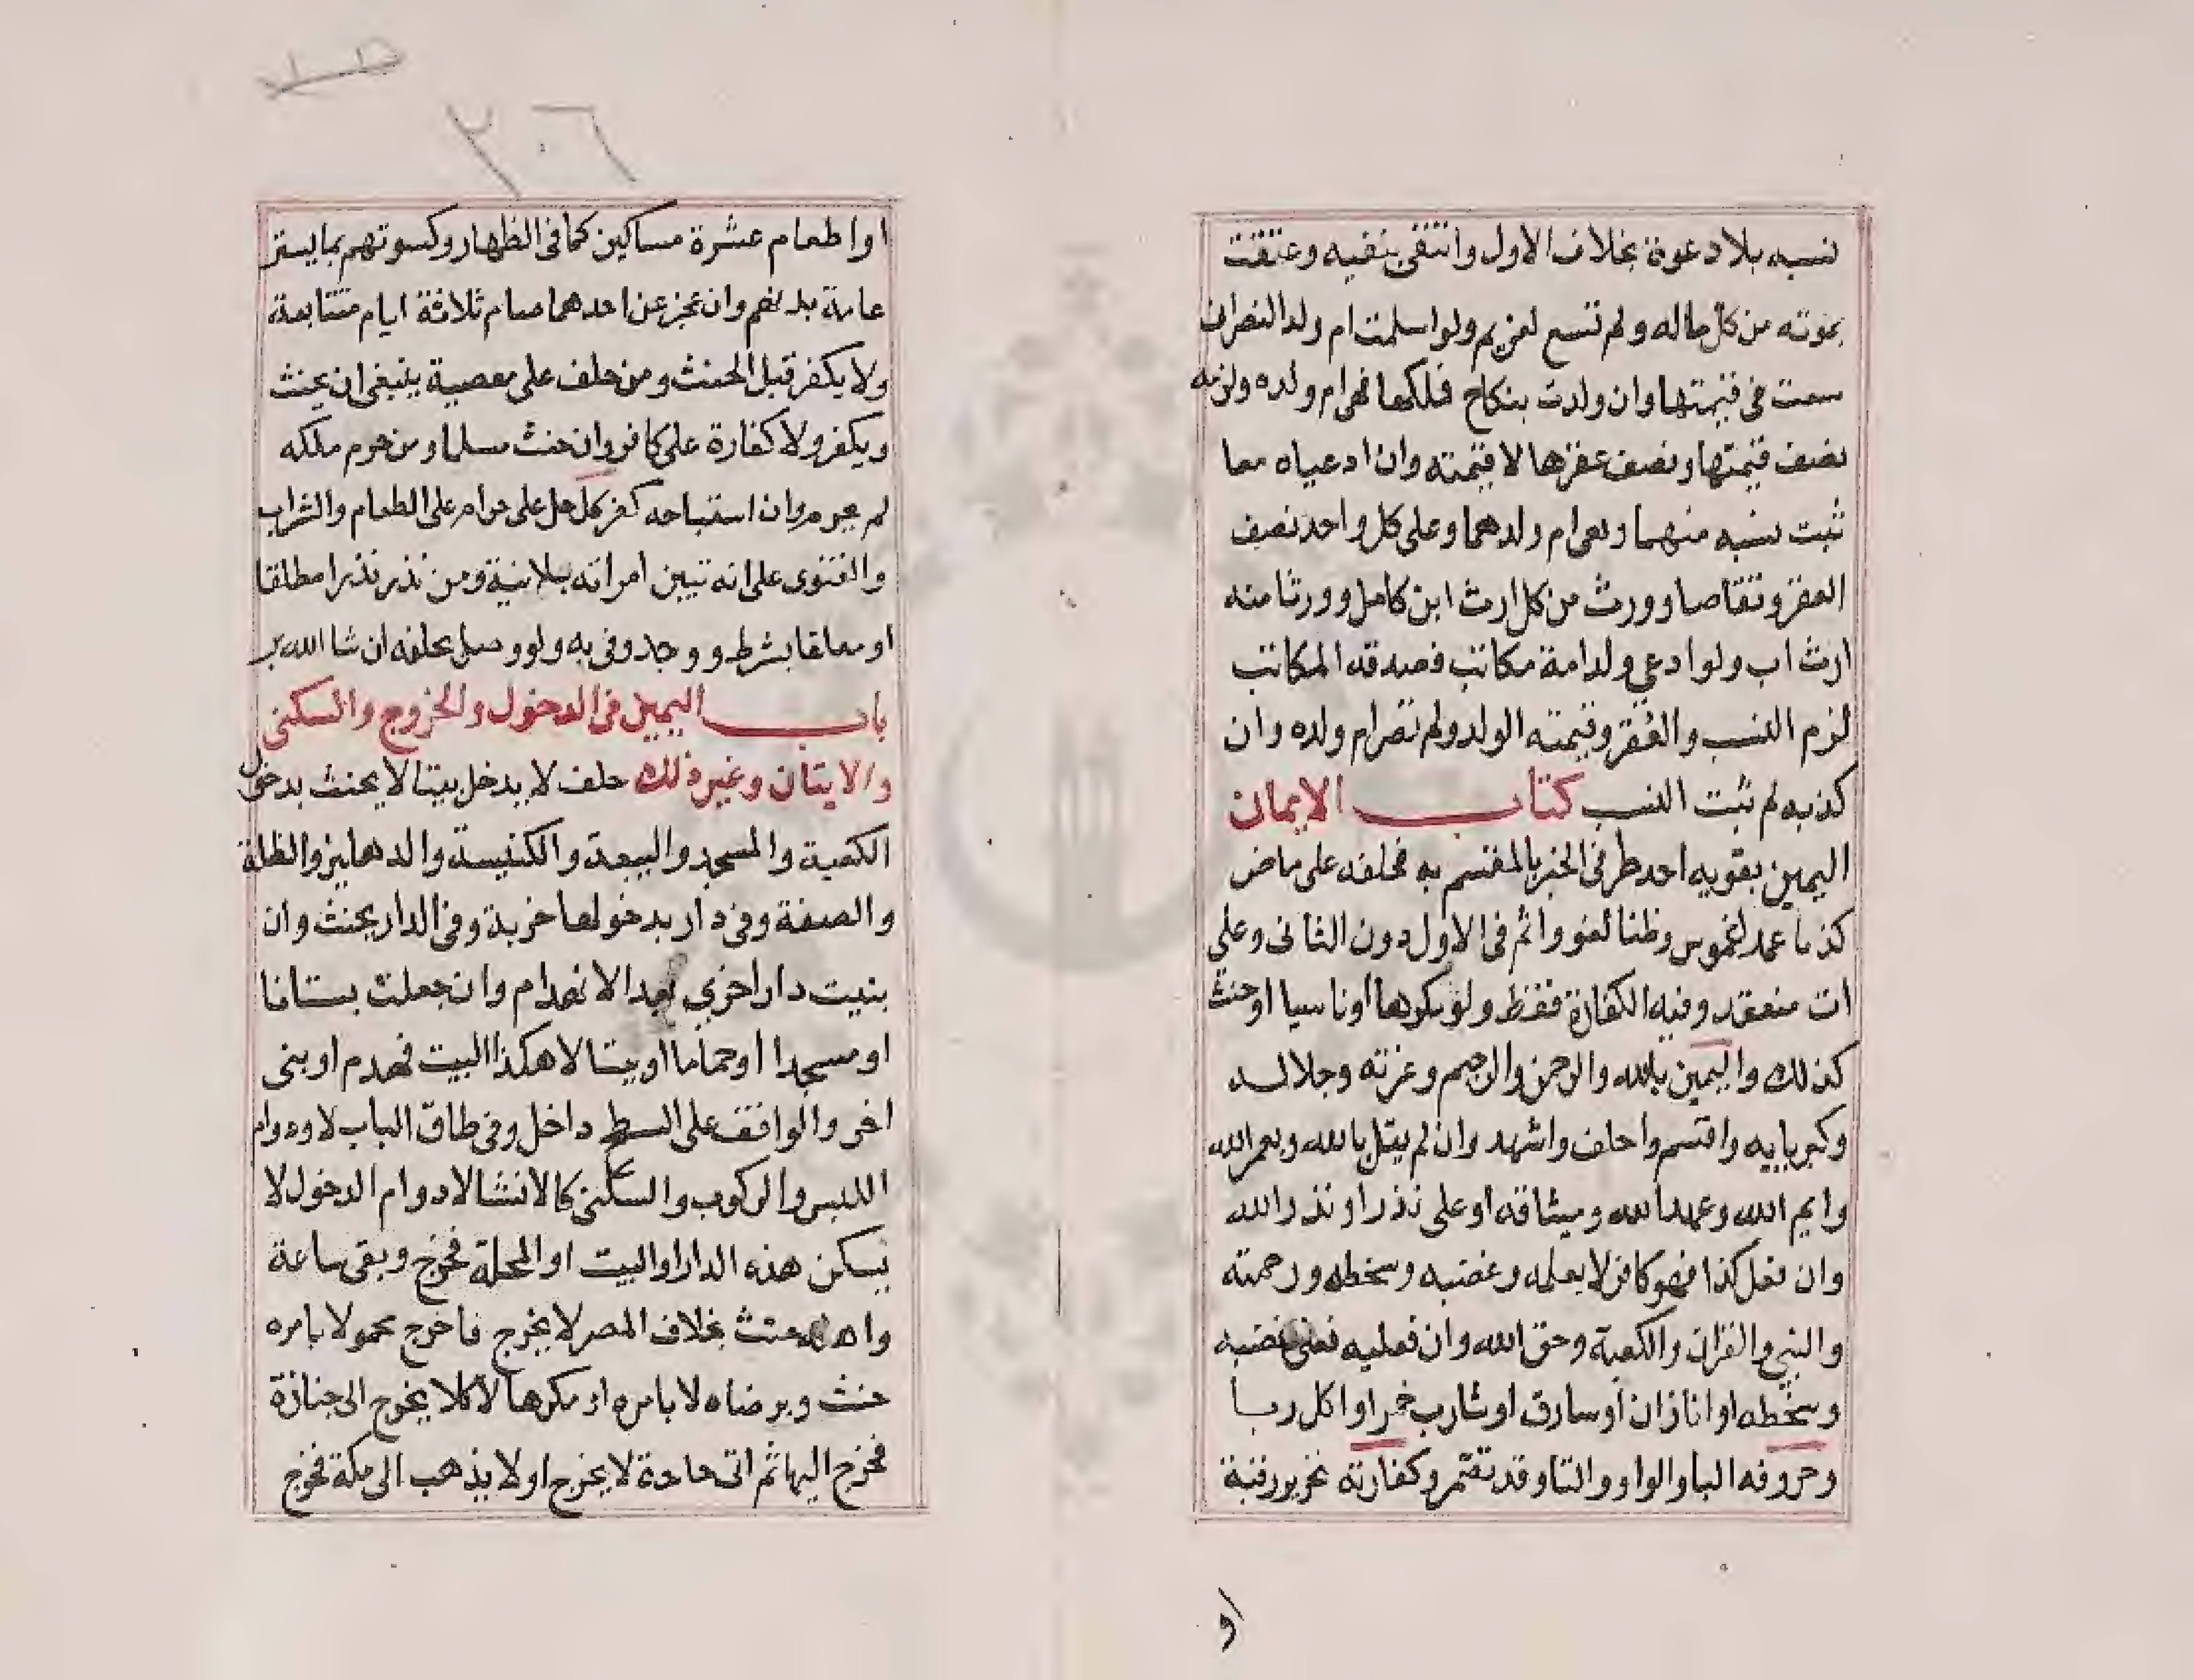 نسبه بلا دعوة بخلاف الاول وانتفى بنفيه وعتقت
بموته من كل ماله ولم تسع لغريم ولو اسلمت ام ولد النصراني
سعت في قيمتها وان ولدت بنكاح فملكها فهي ام ولده ولزمه
نصف قيمتها ونصف عقرها لا قيمته وان ادعياه معا
ثبت نسبه منهما وهي ام ولدهما وعلى كل واحد نصف
العقر وتقاصا وورث من كل ارث ابن كامل وورثا منه
ارث اب ولو ادعي ولد امة مكاتب فصدقه المكاتب
لزم النسب والعقر وقيمته الولد ولم تصر ام ولده وان
كذبه لم ثبت النسب كتاب الايمان
اليمين بقويه احد طرفي الخبر بالمقسم به فحلفه على ماض
كذبا عمدا غموس وظنا لغو واثم في الاول دون الثاني وعلي
ات منعقد وفيه الكفارة فقط ولو مكرها او ناسيا او حنث
كذلك واليمين بالله والرحمن والرحيم وعزته وجلاله
وكبريايه واقسم واحلف واشهد وان لم يقل بالله ولعمر الله
وايم الله وعهد الله وميثاقه او على نذر او نذر الله
وان فعل كذا فهو كافر لا بعلمه وغضبه وسخطه ورحمته
والنبي والقران والكعبة وحق الله وان فعليه فعلى غضبه
وسخطه او انا زان او سارق او شارب خمر او اكل ربا
وحروفه البا والواو والتا وقد تضمر وكفارته تحرير رقبة
او
٢٠٦
او اطعام عشرة مساكين كما في الظهار وكسوتهم بما يستر
عامة بدنهم وان عجز عن احدهما صام ثلاثة ايام متتابعة
ولا يكفر قبل الحنث ومن حلف على معصية ينبغي ان يحنث
ويكفر ولا كفارة على كافر وان حنث مسلما ومن حرم ملكه
لم يحرم وان استباحه كفر كل حل على حرام على الطعام والشراب
والفتوى على انه تبين امراته بلا نية ومن نذر نذرا مطلقا
او معلقا بشرط ووجد وفى به ولو وصل بحلفه ان شا الله بر
باب اليمين في الدخول والخروج والسكنى
والايتان وغير ذلك حلف لا يدخل بيتا لا يحنث بدخول
الكعبة والمسجد والبيعة والكنيسة والدهليز والظلة
والصفة وفي دار بدخولها خربة وفي الدار يحنث وان
بنيت دارا اخري بعد الانهدام وان جعلت بستانا
او مسجدا او حماما او بيتا لا هكذا البيت فهدم او بنى
اخر والواقف على السطح داخل وفي طاق الباب لا ودوام
اللبس والركوب والسكنى كالانشا لا دوام الدخول لا
يسكن هذه الدار او البيت او المحلة فخرج وبقى ساعة
واهله حنث بخلاف المصر لا يخرج فاخرج محمولا بامره
حنث وبرضاه لا بامره او مكرها لا كلا يخرج الى جنازة
فخرج اليها ثم اتى حاجة لا يخرج او لا يذهب الى مكة فخرج